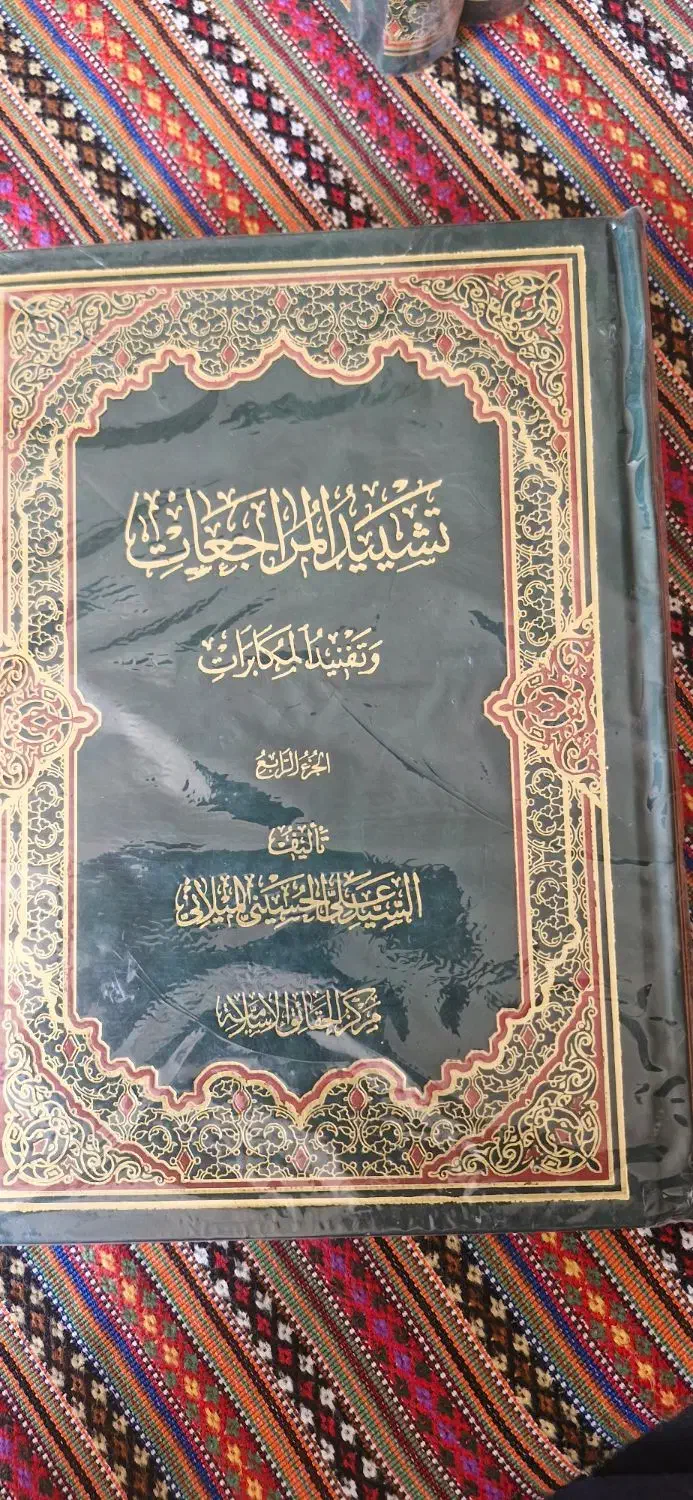 تَشْيِيدُ المُرَاجَعَاتِ
وَتَفْنِيدُ المُكَابَرَاتِ
الجُزءُ الرَّابِعُ
تَأليفُ
السَّيِّد عَلي الحُسَيني الميلاني
مَركَز الحَقائِق الاسلاميّة